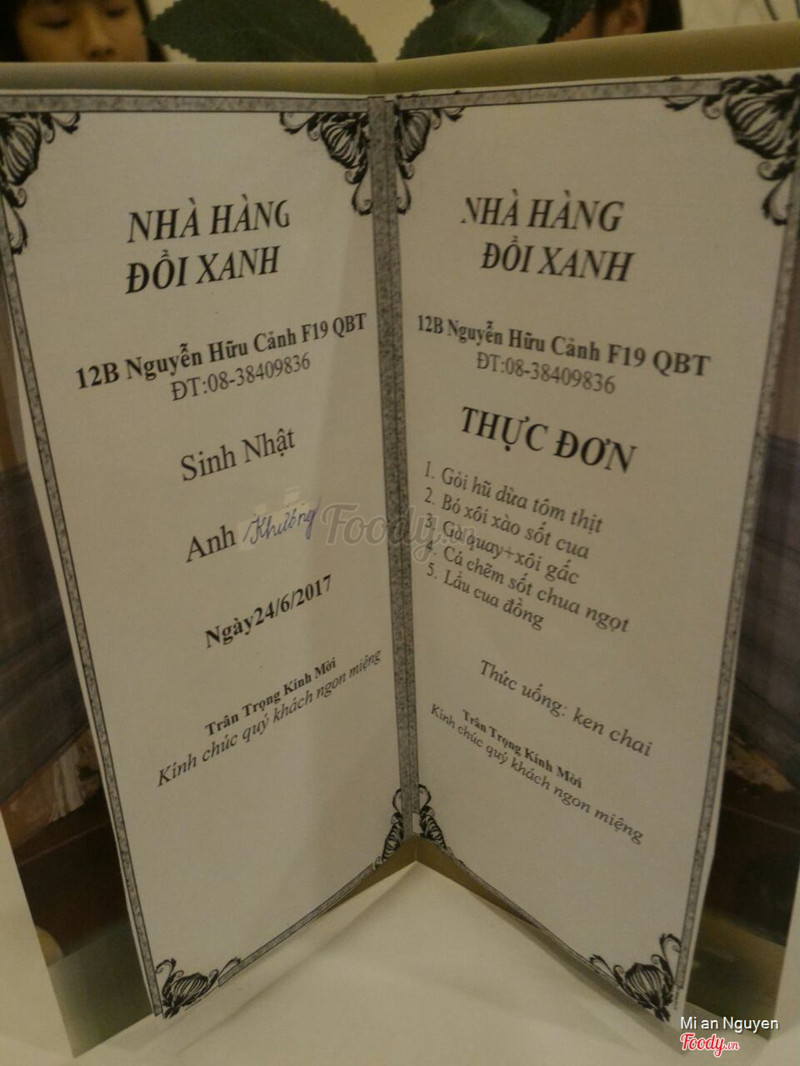 NHÀ HÀNG
ĐỒI XANH
12B Nguyễn Hữu Cảnh F19 QBT
ĐT:08-38409836
Sinh Nhật
Anh Khương
Ngày24/6/2017
Trân Trọng Kính Mời
Kính chúc quý khách ngon miệng
NHÀ HÀNG
ĐỒI XANH
12B Nguyễn Hữu Cảnh F19 QBT
ĐT:08-38409836
THỰC ĐƠN
1. Gỏi hũ dừa tôm thịt
2. Bó xôi xào sốt cua
3. Gà quay+xôi gấc
4. Cá chẽm sốt chua ngọt
5. Lẩu cua đồng
Thức uống: ken chai
Trân Trọng Kính Mời
Kính chúc quý khách ngon miệng
Foody.vn
Mi an Nguyen
Foody.vn